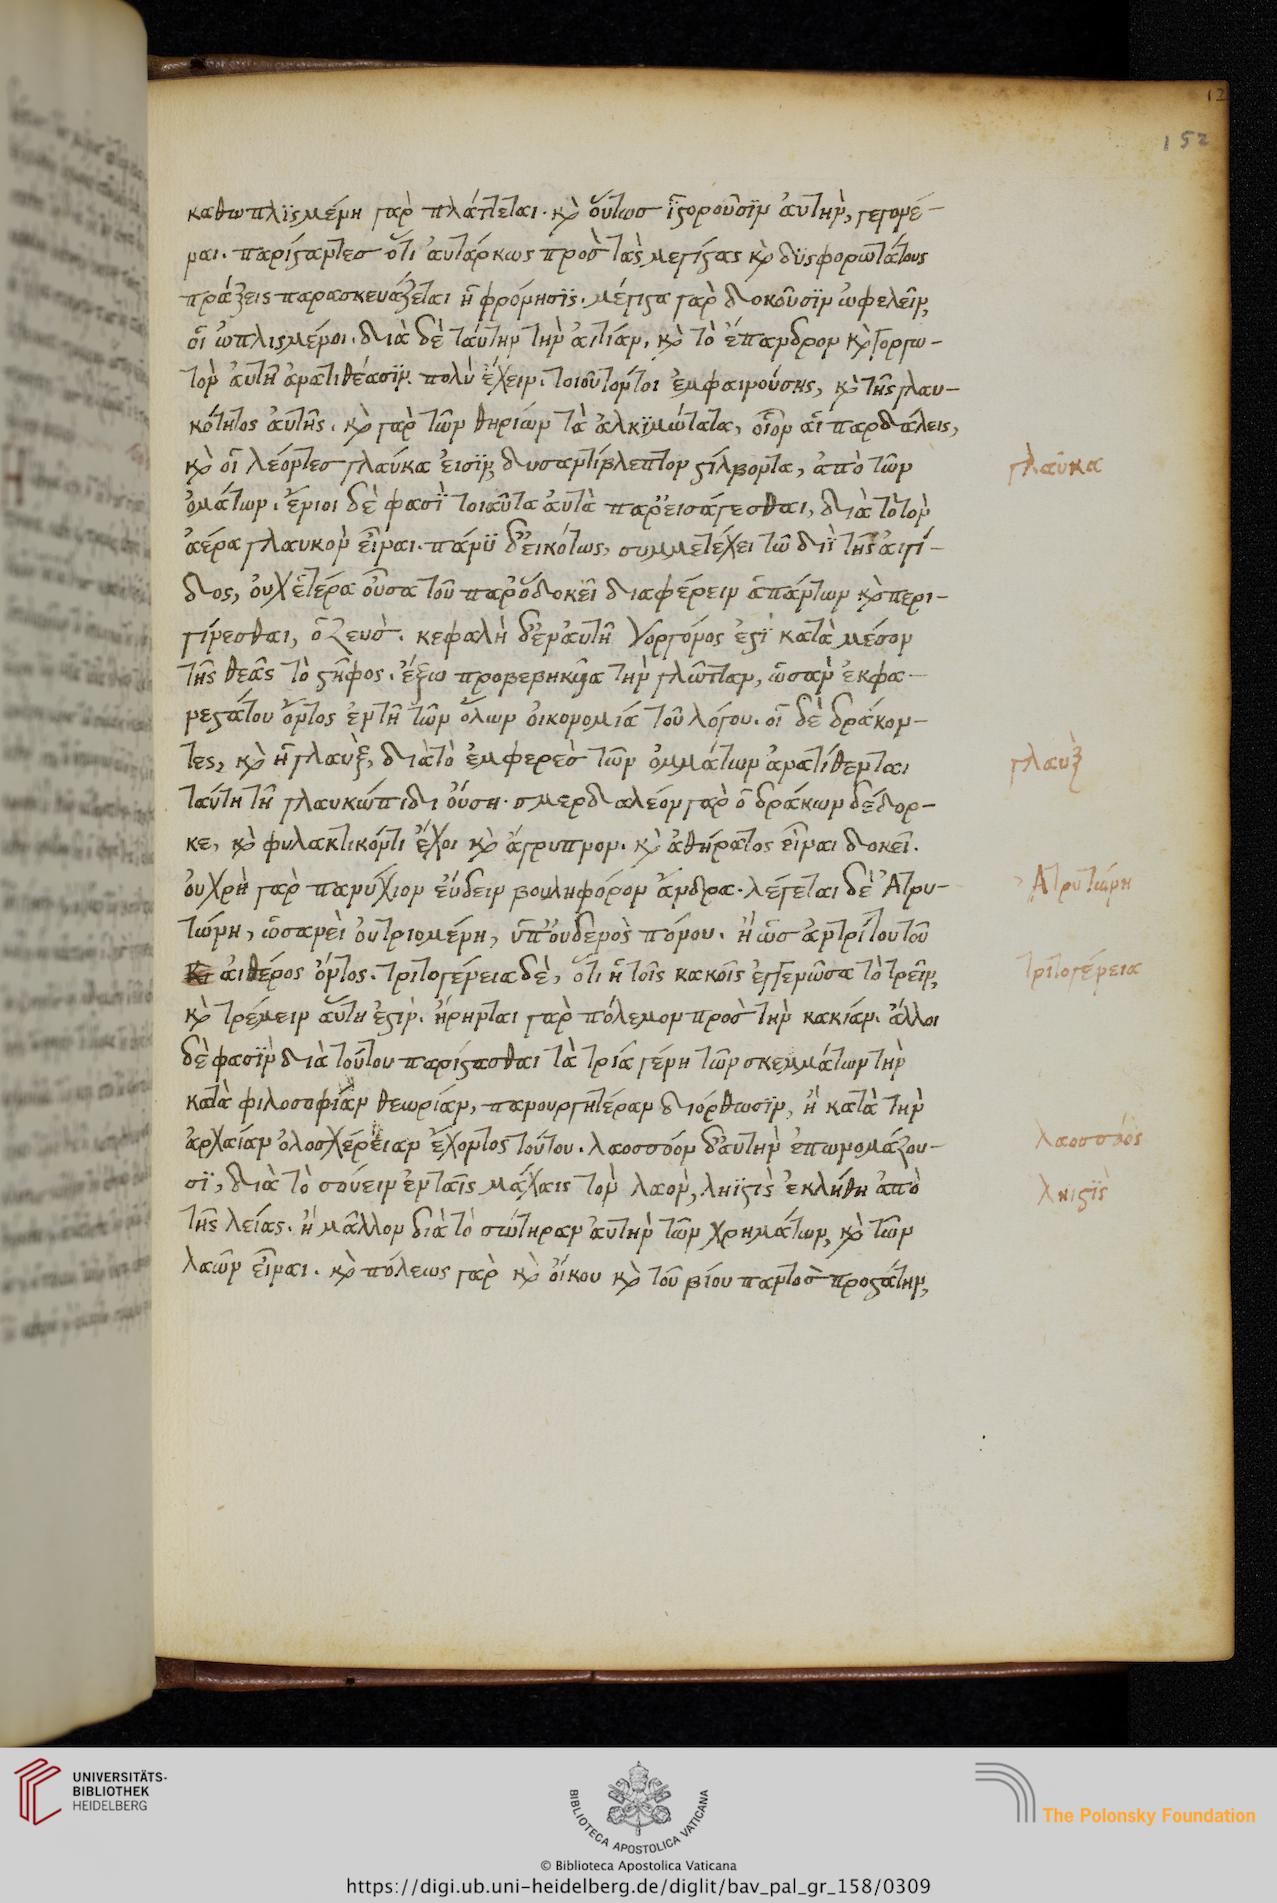 12
152
καθωπλϊσμένη γαρ πλάττεται. κ̀ όυτωσ ἱστορουσϊν ἀυτην, γεγονέ-
ναι. παρίσταντεσ ὅτι ἀυτάρκως προσ τας μεγίστας κ̀ δϋσφορωτάτους
πράξεις παρασκευάζεται ἡ φρόνησϊς. μέγιστα γαρ δοκοῦσϊν ὠφελεῖν,
οἱ ὡπλισμένοι. διὰ δὲ ταύτην την ἀιτίαν, κ̀ τὸ ἔπανδρον κ̀ γοργω-
τον ἀυτῆ ἀνατιθέασϊν. πολύ ἔχειν. τοιοῦτον τοι ἐμφαινούσης, κ̀ τῆς γλαυ-
κότητος ἀυτῆς. κ̀ γαρ τῶν θηρίων τὰ ἀλκϊμώτατα, οἷον αἱ παρδάλεις,
κ̀ οἱ λέοντεσ γλαύκα ἐισϊν, δυσαντίβλεπτον στίλβοντα, ἀπὸ τῶν
γλαῦκα
ὀμάτων. ἔνιοι δὲ φασὶ τοιαῦτα ἀυτὰ παρεισάγεσθαι, διὰ τὸ τον
ἀέρα γλαυκον εἶναι. πάνϋ δ' εἰκότως, συμμετέχει τῶ διῒ τῆς ἀιγί-
δος, ὀυχ ἑτέρα οὖσα τοῦ παρ' ὃ δοκεῖ διαφέρειν ἁπάντων κ̀ περι-
γίνεσθαι, ὁ ζευσ. κεφαλὴ δ' ἐν ἀυτῆ γοργόνος ἐστὶ κατὰ μέσον
τῆς θεᾶς τὸ στῆθος. ἔξω προβεβηκυῖα την γλῶτταν, ὡσαν ἐκφα-
νεστάτου ὄντος ἐν τῆ τῶν ὅλων ὀικονομία τοῦ λόγου. οἱ δὲ δράκον-
τες, κ̀ ἡ γλαυξ, διὰ τὸ ἐμφερεσ τῶν ὀμμάτων ἀνατίθενται
γλαυξ
ταύτη τῆ γλαυκώπιδι ὄυση. σμερδαλέον γαρ ὁ δράκων δέδορ-
κε, κ̀ φυλακτικόν τι ἔχοι κ̀ ἄγρυπνον. κ̀ ἀθήρατος εἶναι δοκεῖ.
ὀυ χρὴ γαρ παννύχιον ἔυδειν βουληφόρον ἄνδρα. λέγεται δὲ Ἀτρυ-
Ἀτρυτώνη
τώνη, ὡσανεὶ ὀυ τριομένη, ὑπ' ὀυδενὸς πόνου. ἢ ὡσ ἀν τρίτου τοῦ
ἀιθέρος ὄντος. τριτογένεια δὲ, ὅτι ἡ τοῖς κακοῖς ἐγγενῶσα τὸ τρεῖν,
τριτογένεια
κ̀ τρέμειν ἅυτη ἐστιν. ἤρηνται γαρ πόλεμον προσ την κακίαν. ἄλλοι
δὲ φασϊν διὰ τούτου παρίστασθαι τὰ τρία γένη τῶν σκεμμάτων την
κατὰ φιλοσοφίαν θεωρίαν, πανουργητέραν διόρθωσϊν, ἢ κατὰ την
ἀρχαίαν ὁλοσχέρειαν ἔχοντος τούτου. λαοσσόον δ' ἀυτην ἐπωνομάζου-
λαοσσόος
σϊ, διὰ τὸ σούειν ἐν ταῖς μάχαις τον λαον, ληϊστις ἐκλήθη ἀπὸ
ληιστϊς
τῆς λείας. ἢ μᾶλλον διὰ τὸ σώτηραν ἀυτην τῶν χρημάτων, κ̀ τῶν
λαῶν εἶναι. κ̀ πόλεως γαρ κ̀ ὄικου κ̀ τοῦ βίου παντοσ προστάτην,
UNIVERSITÄTS-
BIBLIOTHEK
HEIDELBERG
BIBLIOTECA APOSTOLICA VATICANA
The Polonsky Foundation
© Biblioteca Apostolica Vaticana
https://digi.ub.uni-heidelberg.de/diglit/bav_pal_gr_158/0309